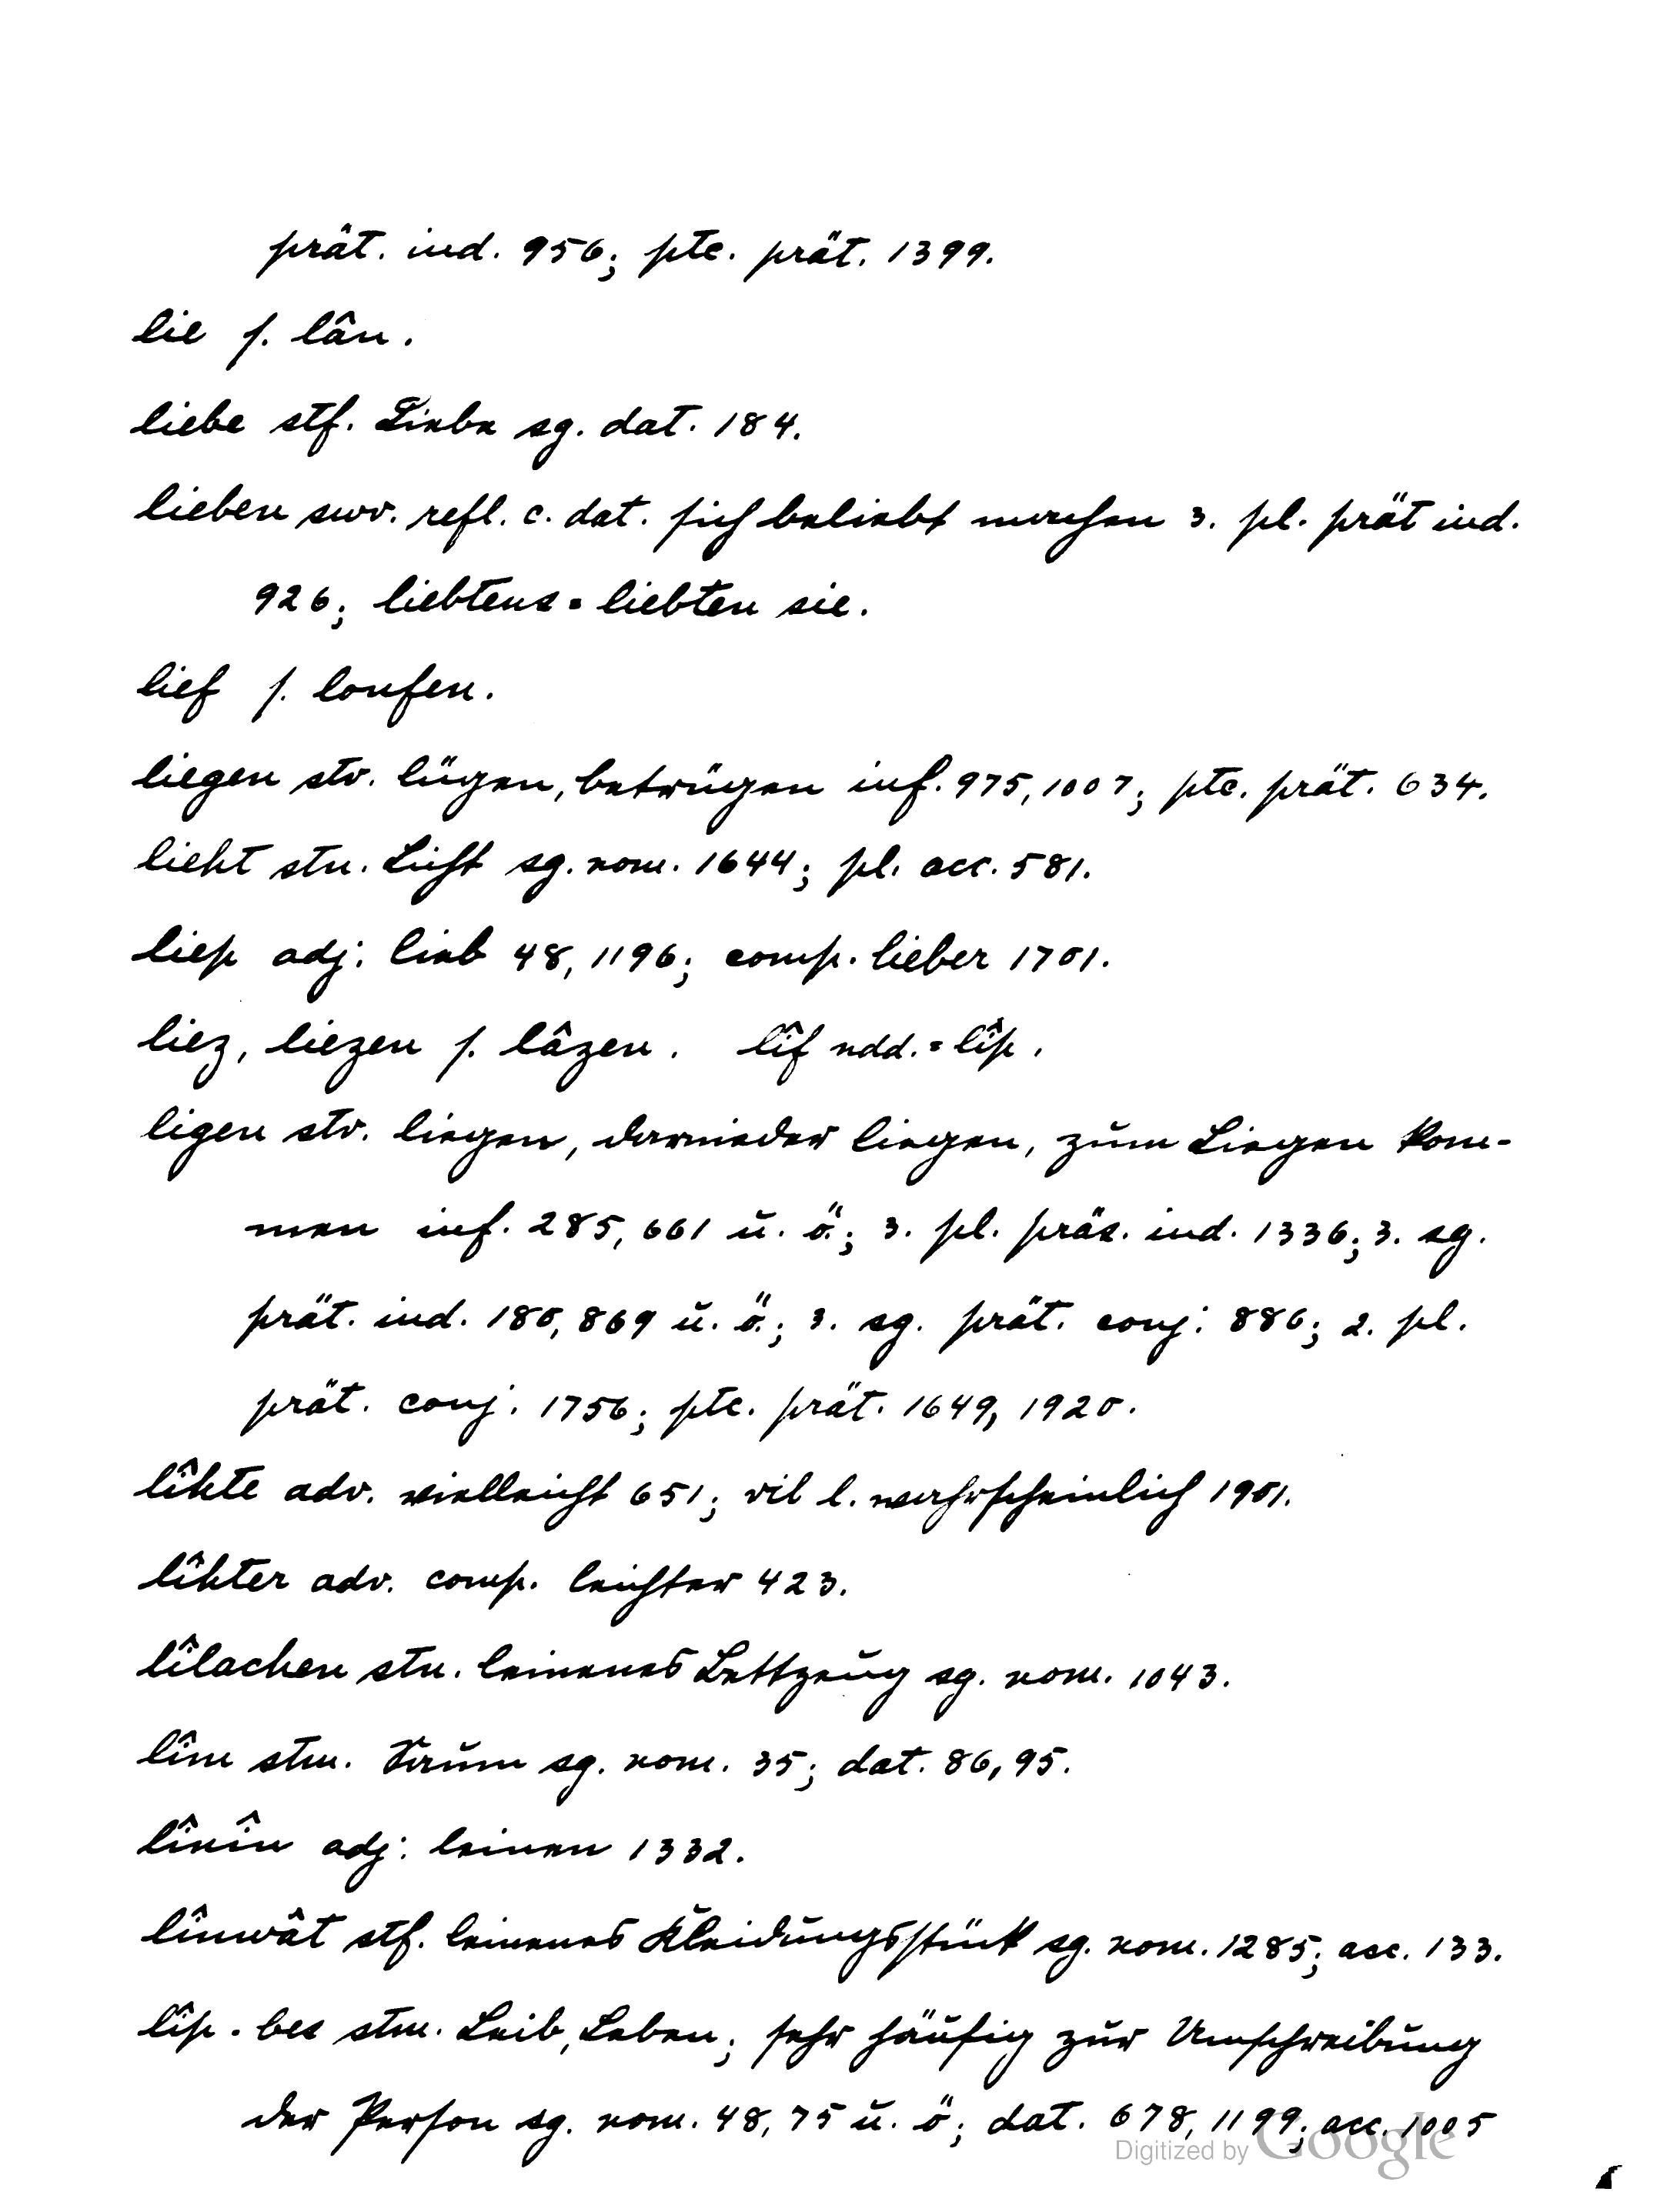 prät. ind. 956; ptc. prät. 1399.
lie s. lân.
liebe stf. Liebe sg. dat. 184.
lieben swv. refl. c. dat. sich beliebt machen 3. pl. prät ind.
926; liebtens = liebten sie.
lief s. loufen.
liegen stv. lügen, betrügen inf. 975, 1007; ptc. prät. 634.
lieht stn. Licht sg. nom. 1644; pl. acc. 581.
liep adj. lieb 48, 1196; comp. lieber 1701.
liez, liezen s. lâzen. lîf ndd. = lîp.
ligen stv. liegen, darnieder liegen, zum Liegen kom-
men inf. 285, 661 u. ö.; 3. pl. präs. ind. 1336; 3. sg.
prät. ind. 180, 869 u. ö.; 3. sg. prät. conj. 886; 2. pl.
prät. conj. 1756; ptc. prät. 1649, 1920.
lîhte adv. vielleicht 651; vil l. wahrscheinlich 1901.
lîhter adv. comp. leichter 423.
lîlachen stn. leinenes Bettzeug sg. nom. 1043.
lîm stm. sg. nom. 35; dat. 86, 95.
lînîn adj. leinen 1332.
lînwât stf. leinenes Kleidungsstück sg. nom. 1285; acc. 133.
lîp - bes stm. Leib, Leben; sehr häufig zur Umschreibung
der Person sg. nom. 48, 75 u. ö; dat. 678, 1199; acc. 1005
Digitized by Google